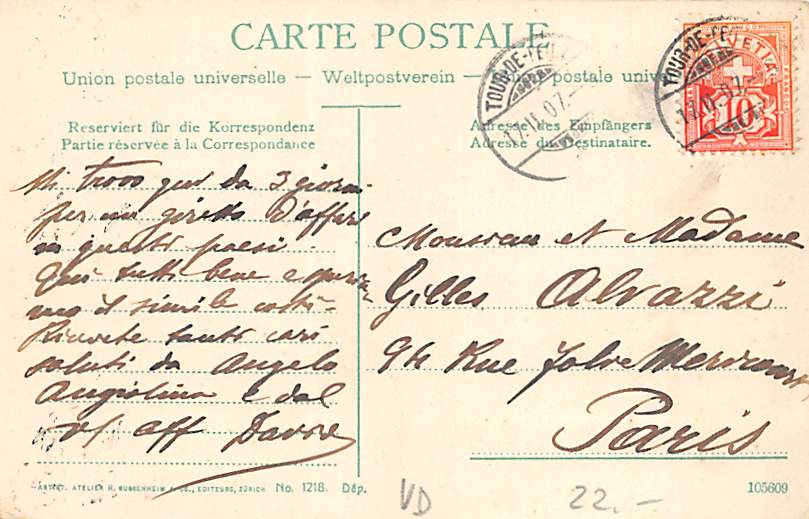 CARTE POSTALE
Union postale universelle — Weltpostverein — postale
Reserviert für die Korrespondenz
Partie réservée à la Correspondance
Adresse des Empfängers
Adresse du Destinataire.
TOUR-DE-PE
11.II.07.-
TOUR-DE-PE
11.II.07.-
HELVETIA
FRANCO
10
Mi trovo qui da 3 giorni
per un giretto d'affari
in questi paesi.
Qui tutti bene e speria-
mo il simile costì-
Ricevete tanti cari
saluti da Angelo
Angiolina e dal
v/ aff
Monsieur et Madame
Gilles Alvazzi
Rue
Paris
ARTIST. ATELIER H. GUGGENHEIM & CO., EDITEURS, ZÜRICH No. 1218. Dép.
105609
VD
22.-